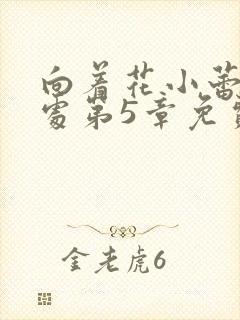 向着花小蕾
处第5章免费
金老虎6